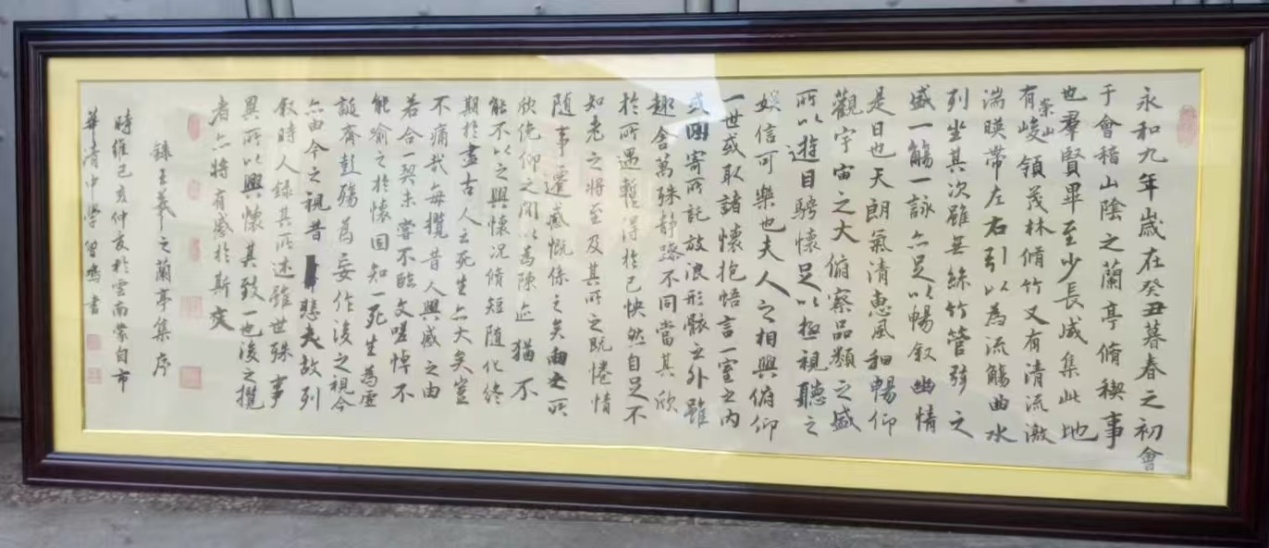 永和九年歲在癸丑暮春之初會
于會稽山陰之蘭亭脩禊事
也羣賢畢至少長咸集此地
有崇山峻領茂林脩竹又有清流激
湍暎帶左右引以為流觴曲水
列坐其次雖無絲竹管弦之
盛一觴一詠亦足以暢叙幽情
是日也天朗氣清惠風和暢仰
觀宇宙之大俯察品類之盛
所以遊目騁懷足以極視聽之
娛信可樂也夫人之相與俯仰
一世或取諸懷抱悟言一室之內
或因寄所託放浪形骸之外雖
趣舍萬殊靜躁不同當其欣
於所遇暫得於己快然自足不
知老之將至及其所之既惓情
隨事遷感慨係之矣向之所
欣俛仰之閒以為陳迹猶不
能不以之興懷況脩短隨化終
期於盡古人云死生亦大矣豈
不痛哉每攬昔人興感之由
若合一契未嘗不臨文嗟悼不
能喻之於懷固知一死生為虛
誕齊彭殤為妄作後之視今
亦由今之視昔悲夫故列
叙時人錄其所述雖世殊事
異所以興懷其致一也後之攬
者亦將有感於斯文
錄王羲之蘭亭集序
時維己亥仲夏於雲南蒙自市
華清中學曾書